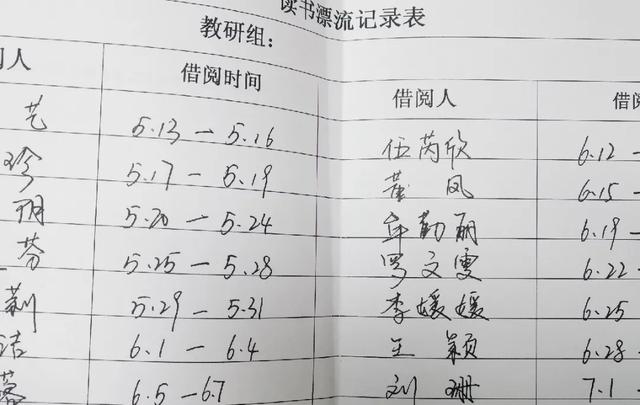 读书漂流记录表
教研组：
人 借阅时间 借阅人 借阅
艺 5.13 — 5.16 伍芮欣 6.12 —
珍 5.17 — 5.19 黄 凤 6.15 —
玥 5.20 — 5.24 牟勤丽 6.19 —
芬 5.25 — 5.28 罗文雯 6.22 —
莉 5.29 — 5.31 李媛媛 6.25
洁 6.1 — 6.4 王 颖 6.28 —
蓉 6.5 — 6.7 刘 珊 7.1 —